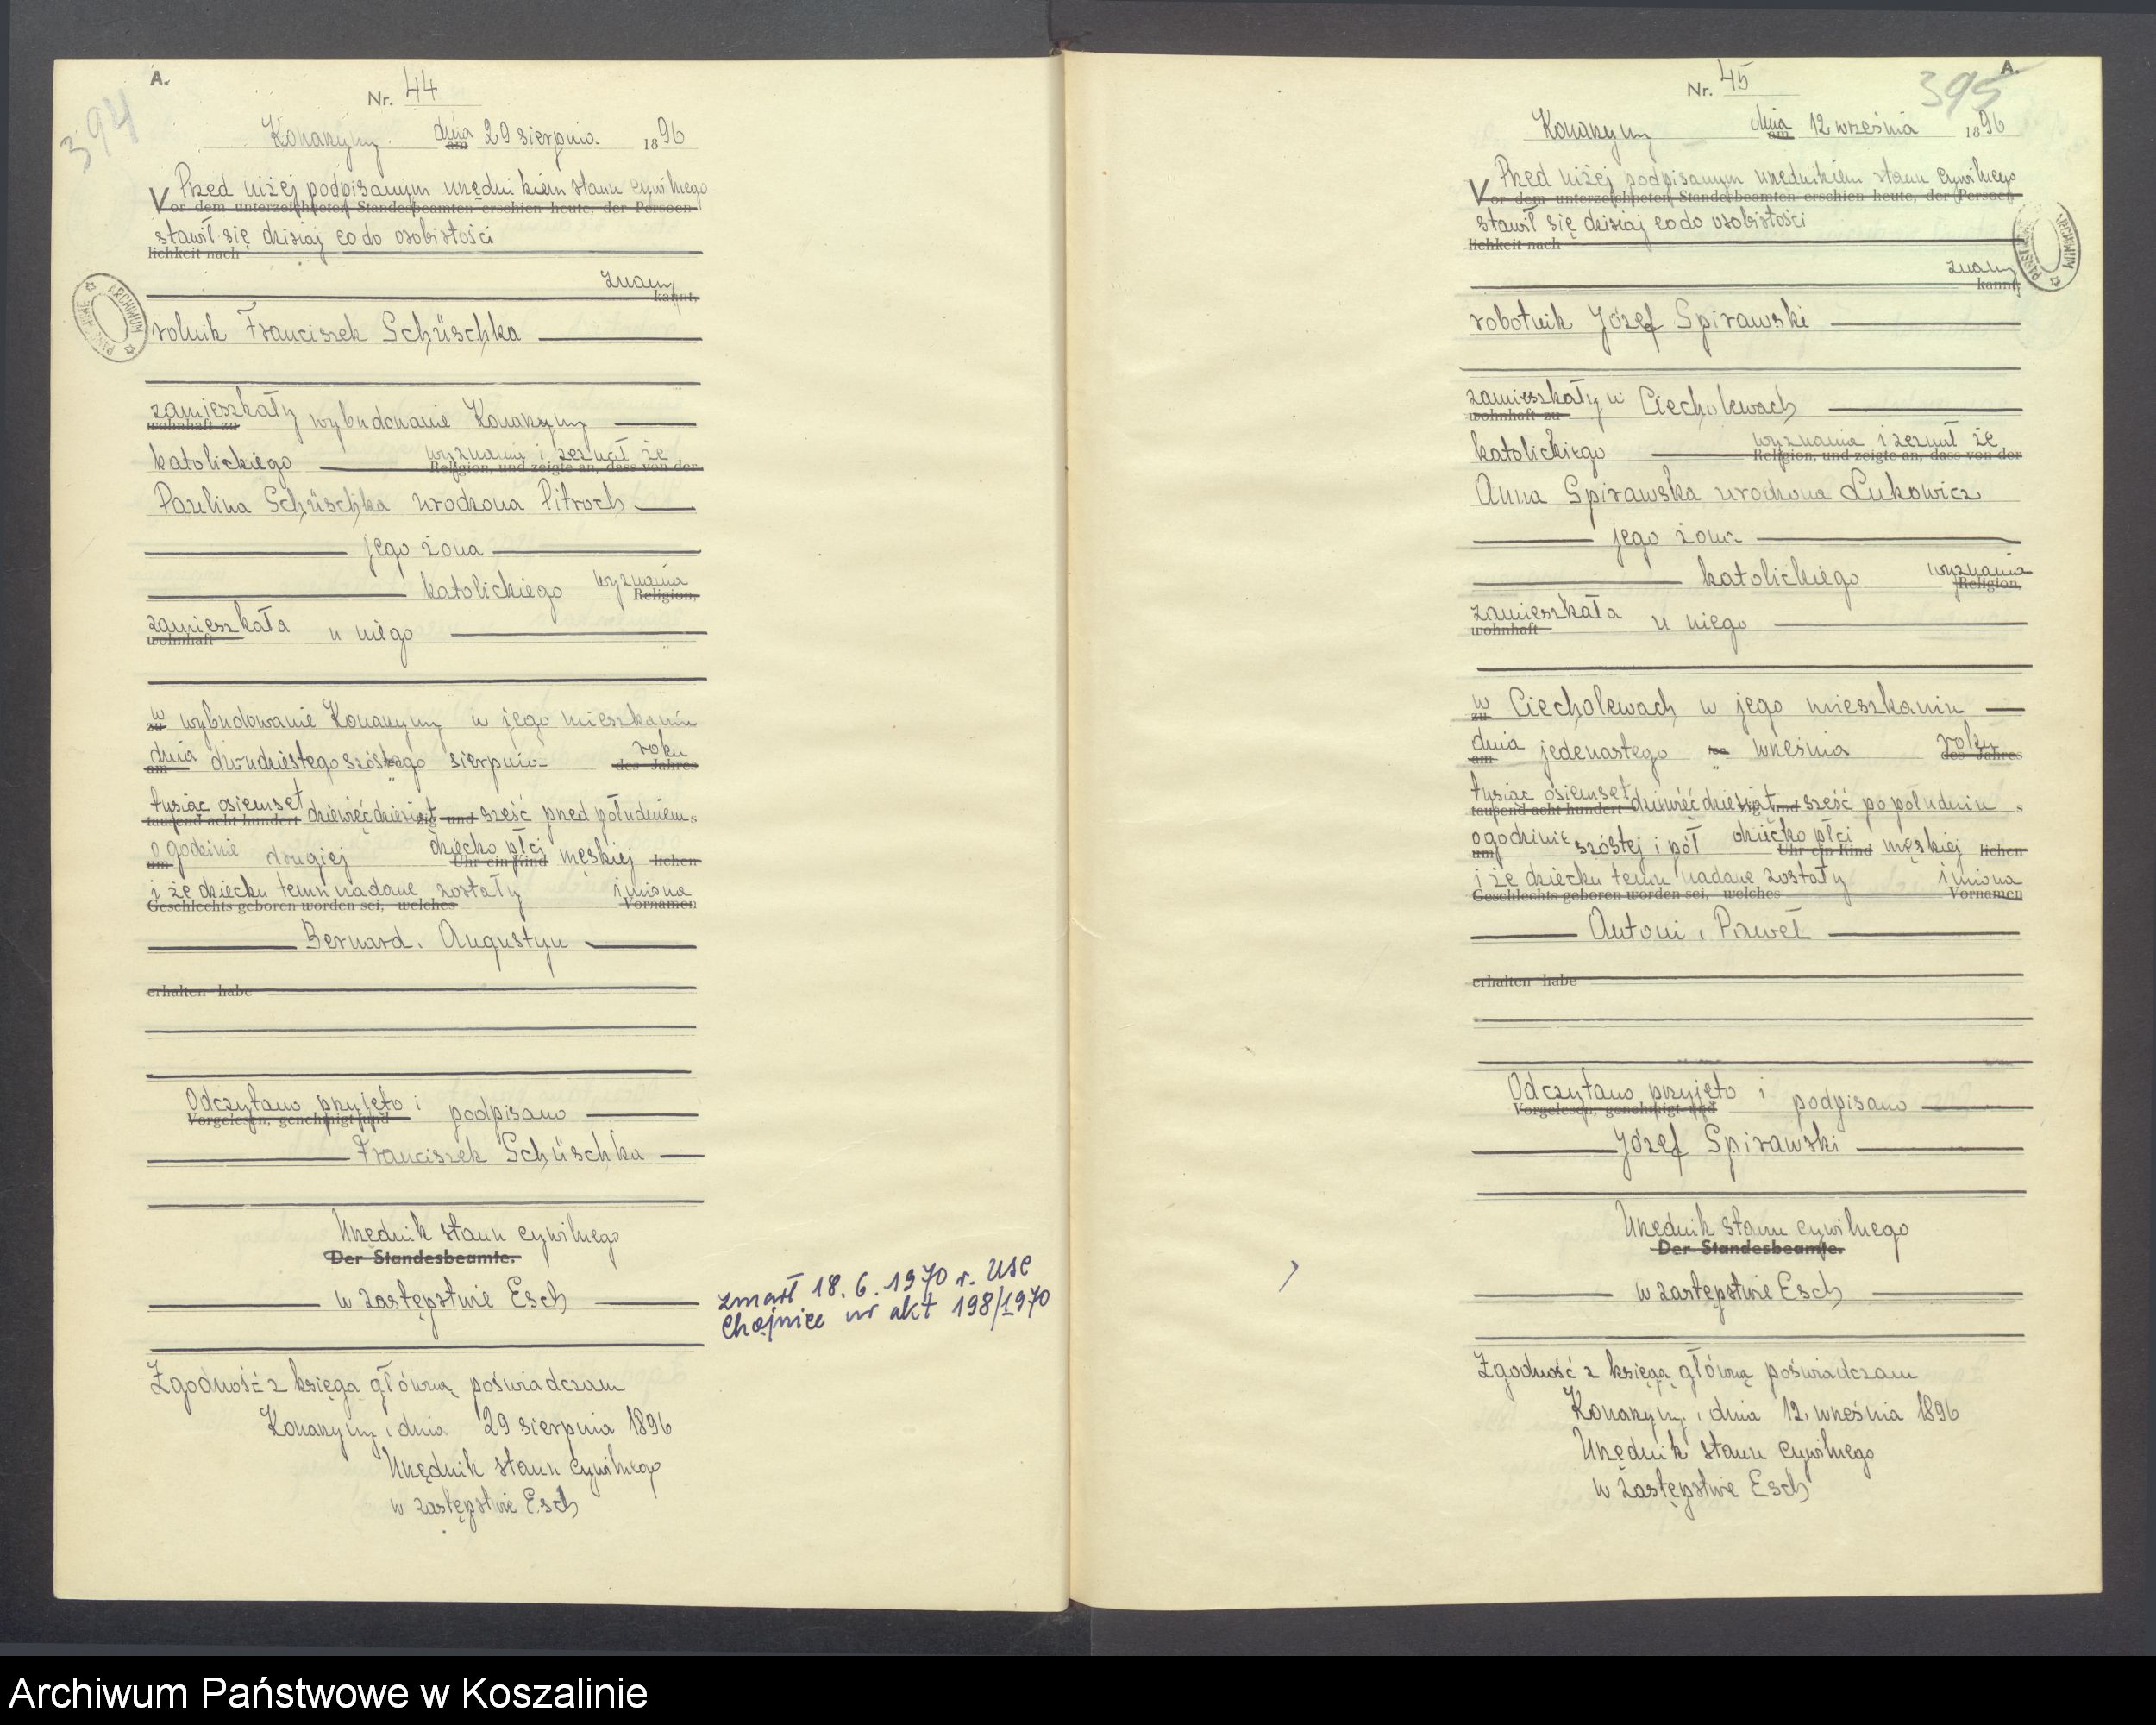 A.
394
Nr. 44
Konarzyny dnia am 29 sierpnia 1896
Przed niżej podpisanym urzędnikiem stanu cywilnego
Vor dem unterzeichneten Standesbeamten erschien heute, der Persoen
stawił się dzisiaj co do osobistości
lichkeit nach
znany
kannt,
rolnik Franciszek Schüschka
zamieszkały wybudowanie Konarzyny
wohnhaft zu
katolickiego wyznania i zeznał że
Religion, und zeigte an, dass von der
Paulina Schüschka urodzona Pitroch
jego żona
katolickiego wyznania
Religion,
zamieszkała u niego
wohnhaft
w wybudowanie Konarzyny w jego mieszkaniu
zu
dnia dwudziestego szóstego sierpnia roku
am des Jahres
tysiąc osiemset dziewięćdziesiąt sześć przed południem s
taupend acht hundert zig und
o godzinie drugiej dziecko płci męskiej
um Uhr ein Kind lichen
i że dziecku temu nadane zostały imiona
Geschlechts geboren worden sei, welches Vornamen
Bernard, Augustyn
erhalten habe
Odczytano przyjęto i podpisano
Vorgelesen, genehmigt und
Franciszek Schüschka
Urzędnik stanu cywilnego
Der Standesbeamte.
w zastępstwie Esch
zmarł 18. 6. 1970 r. USC
Chojnice nr akt 198/1970
Zgodność z księgą główną poświadczam
Konarzyny, dnia 29 sierpnia 1896
Urzędnik stanu cywilnego
w zastępstwie Esch
ARCHIWUM
A.
395
Nr. 45
Konarzyny dnia am 12 września 1896
Przed niżej podpisanym urzędnikiem stanu cywilnego
Vor dem unterzeichneten Standesbeamten erschien heute, der Persoen
stawił się dzisiaj co do osobistości
lichkeit nach
znany
kannt,
robotnik Józef Spirawski
zamieszkały w Ciecholewach
wohnhaft zu
katolickiego wyznania i zeznał że
Religion, und zeigte an, dass von der
Anna Spirawska urodzona Lukowicz
jego żona
katolickiego wyznania
Religion,
zamieszkała u niego
wohnhaft
w Ciecholewach w jego mieszkaniu
zu
dnia jedenastego września roku
am des Jahres
tysiąc osiemset dziewięćdziesiąt sześć po południu s
taupend acht hundert zig und
o godzinie szóstej i pół dziecko płci męskiej
um Uhr ein Kind lichen
i że dziecku temu nadane zostały imiona
Geschlechts geboren worden sei, welches Vornamen
Antoni, Paweł
erhalten habe
Odczytano przyjęto i podpisano
Vorgelesen, genehmigt und
Józef Spirawski
Urzędnik stanu cywilnego
Der Standesbeamte.
w zastępstwie Esch
Zgodność z księgą główną poświadczam
Konarzyny, dnia 12. września 1896
Urzędnik stanu cywilnego
w zastępstwie Esch
ARCHIWUM
Archiwum Państwowe w Koszalinie